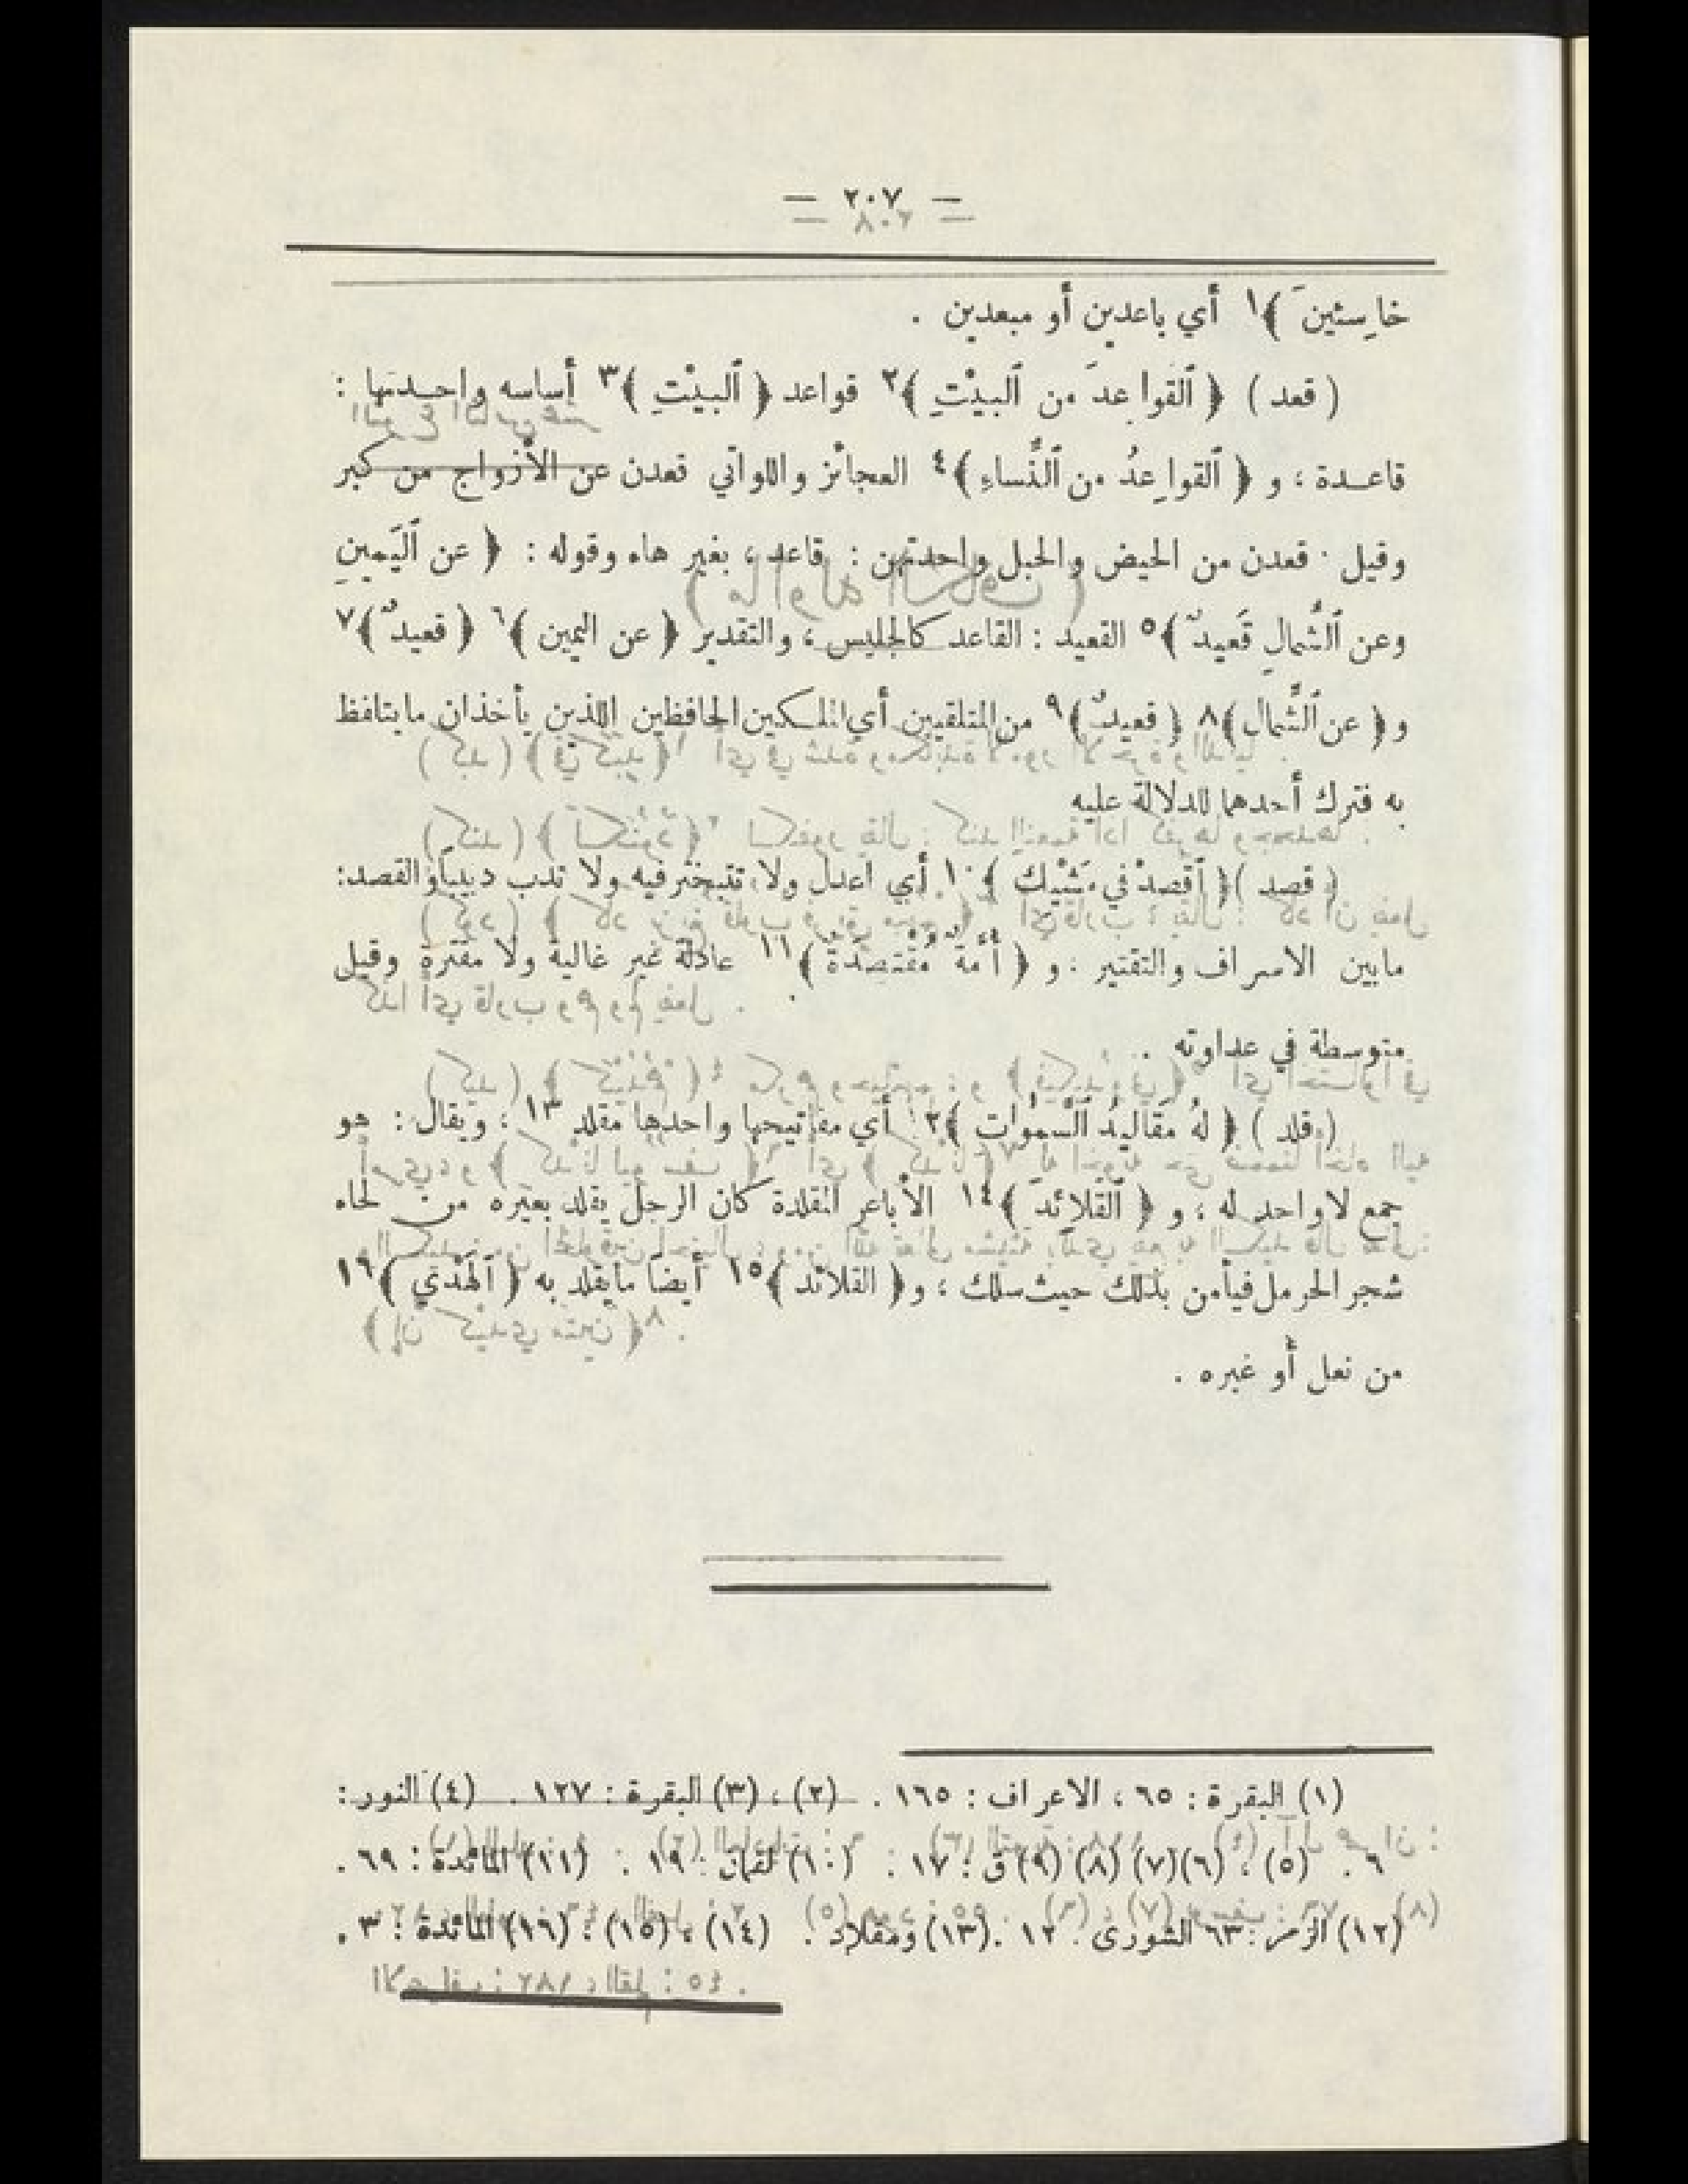 — ٢٠٧ —
خاسئينَ ﴾١ أي باعدين أو مبعدين .
( قعد ) ﴿ ٱلقواعدَ من ٱلبيْتِ ﴾٢ قواعد ﴿ ٱلبيْتِ ﴾٣ أساسه واحدتها :
قاعدة ؛ و ﴿ ٱلقواعدُ من ٱلنِّساءِ ﴾٤ العجائز واللواتي قعدن عن الأزواج من كبر
وقيل . قعدن من الحيض والحبل واحدتهن : قاعد ، بغير هاء وقوله : ﴿ عن ٱليَمينِ
وعن ٱلشِّمالِ قَعيدٌ ﴾٥ القعيد : القاعد كالجليس ؛ والتقدير ﴿ عن اليمين ﴾٦ ﴿ قعيدٌ ﴾٧
و ﴿ عن ٱلشِّمال ﴾٨ ﴿ قعيدٌ ﴾٩ من المتلقيين أي الملكين الحافظين اللذين يأخذان ما يتلفظ
به فترك أحدهما للدلالة عليه
( قصد ) ﴿ ٱقصدْ في مَشْيِكَ ﴾١٠ أي اعدل ولا تتبختر فيه ولا تدب دبيباً والقصد:
مابين الاسراف والتقتير ؛ و ﴿ أُمَّةٌ مُقْتصِدَةٌ ﴾١١ عادلة غير غالية ولا مقترة وقيل
متوسطة في عداوته .
( قلد ) ﴿ لهُ مَقاليدُ ٱلسَّمٰوات ﴾١٢ أي مفاتيحها واحدها مقلد ١٣ ؛ ويقال : هو
جمع لا واحد له ؛ و ﴿ ٱلقلائدَ ﴾١٤ الأباعر المقلدة كان الرجل يقلد بعيره من لحاء
شجر الحرمل فيأمن بذلك حيث سلك ؛ و ﴿ القلائد ﴾١٥ أيضا ما يقلد به ﴿ ٱلهَدْي ﴾١٦
من نعل أو غيره .
(١) البقرة : ٦٥ ، الاعراف : ١٦٥ . (٢) ، (٣) البقرة : ١٢٧ . (٤) النور :
٦٠ . (٥) ، (٦) (٧) (٨) (٩) ق : ١٧ . (١٠) لقمان : ١٩ . (١١) المائدة : ٦٩ .
(١٢) الزمر : ٦٣ الشورى : ١٢ . (١٣) ومقلاد . (١٤) ، (١٥) ، (١٦) المائدة : ٣ .